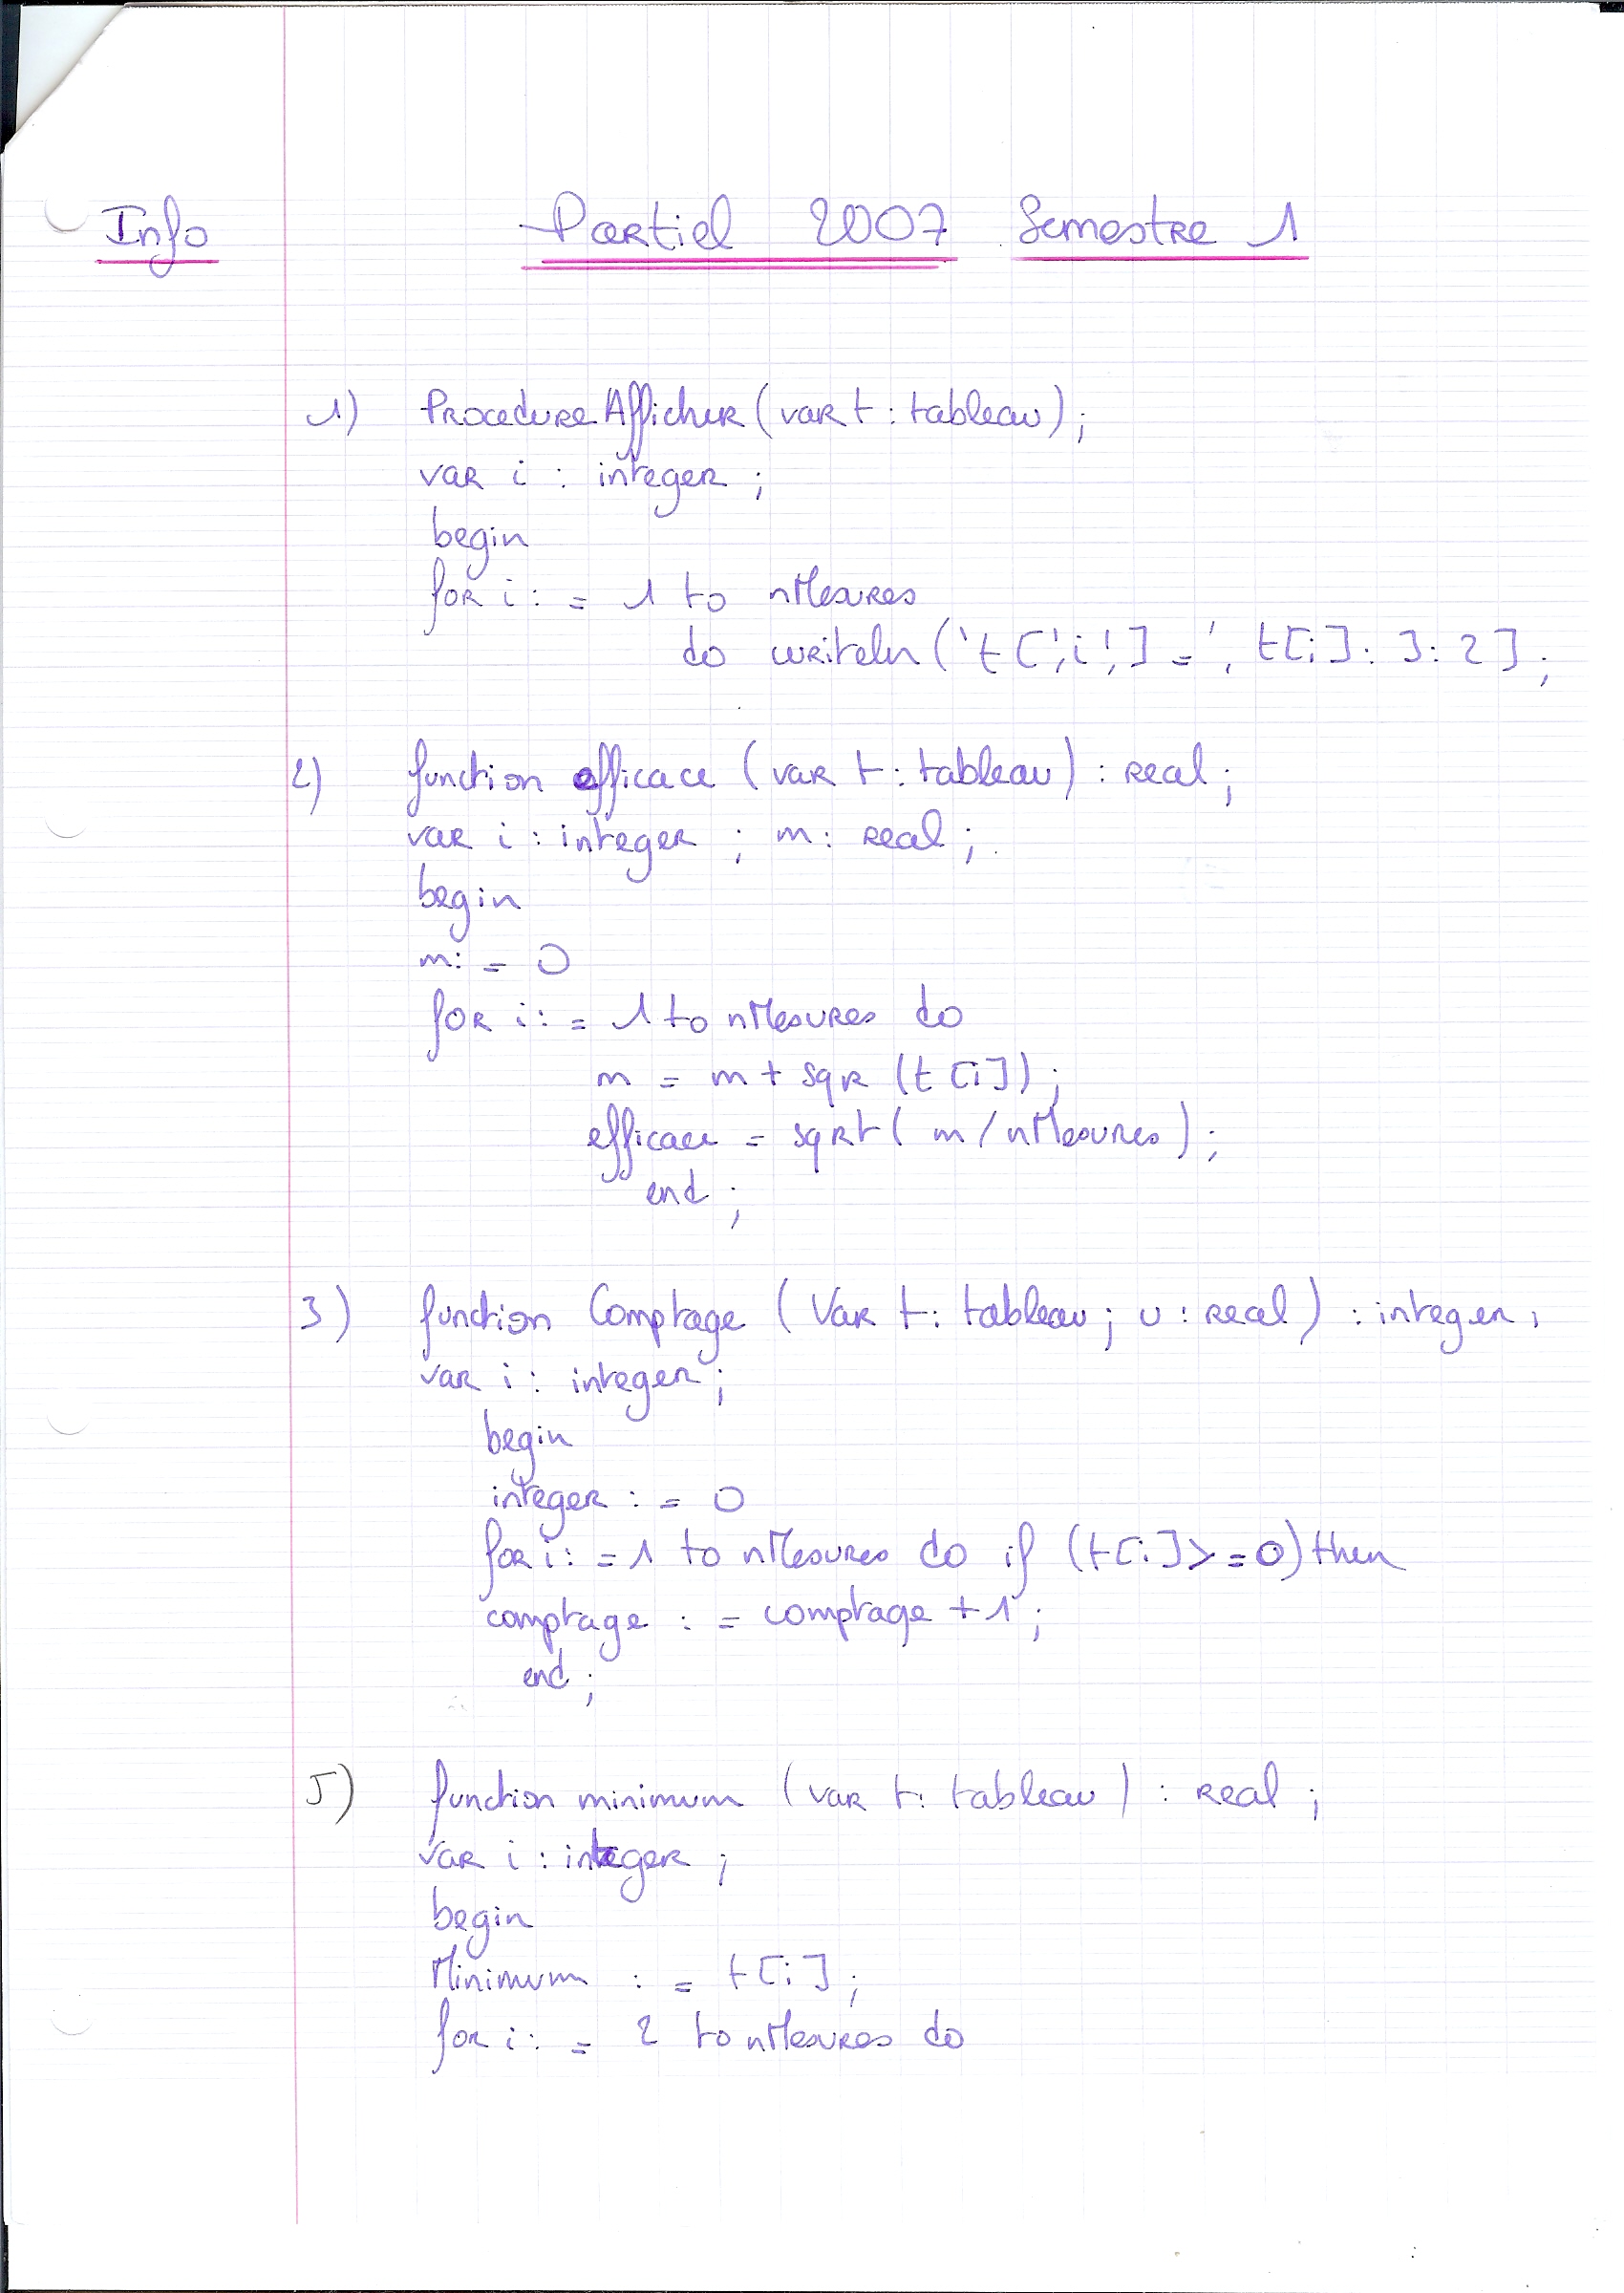 Info
Partiel 2007 Semestre 1
1) Procedure Afficher (var t : tableau) ;
var i : integer ;
begin
for i : = 1 to nMesures
do writeln ('t [', i ', ] = ', t[i] : 3 : 2 ] ;
2) function efficace (var t : tableau) : real ;
var i : integer ; m : real ;
begin
m : = 0
for i : = 1 to nMesures do
m = m + sqr (t [i]) ;
efficace = sqrt ( m / nMesures) ;
end ;
3) function Comptage ( Var t : tableau ; u : real ) : integer ;
var i : integer ;
begin
integer : = 0
for i : = 1 to nMesures do if (t[i] > = 0) then
comptage : = comptage + 1 ;
end ;
5) function minimum (var t : tableau ) : real ;
var i : integer ;
begin
Minimum : = t[i] ;
for i : = 2 to nMesures do